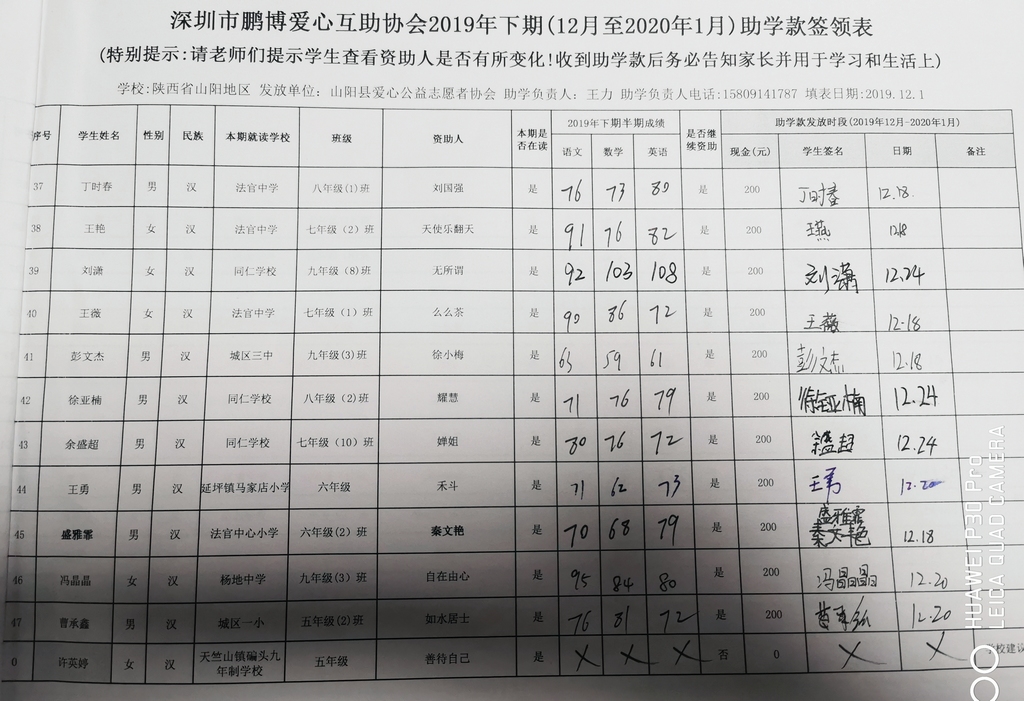 深圳市鹏博爱心互助协会2019年下期(12月至2020年1月)助学款签领表
(特别提示:请老师们提示学生查看资助人是否有所变化!收到助学款后务必告知家长并用于学习和生活上)
学校:陕西省山阳地区 发放单位: 山阳县爱心公益志愿者协会 助学负责人: 王力 助学负责人电话:15809141787 填表日期:2019.12.1
序号 学生姓名 性别 民族 本期就读学校 班级 资助人 本期是否在读 2019年下期半期成绩 是否继续资助 助学款发放时段(2019年12月-2020年1月)
语文 数学 英语 现金(元) 学生签名 日期 备注
37 丁时春 男 汉 法官中学 八年级(1)班 刘国强 是 76 73 80 是 200 丁时春 12.18.
38 王艳 女 汉 法官中学 七年级(2)班 天使乐翻天 是 91 76 82 是 200 12.18
39 刘潇 女 汉 同仁学校 九年级(8)班 无所谓 是 92 103 108 是 200 刘潇 12.24
40 王薇 女 汉 法官中学 七年级(1)班 么么茶 是 90 86 72 是 200 王薇 12.18
41 彭文杰 男 汉 城区三中 九年级(3)班 徐小梅 是 63 59 61 是 200 彭文杰 12.18
42 徐亚楠 男 汉 同仁学校 八年级(2)班 耀慧 是 71 76 79 是 200 徐亚楠 12.24
43 余盛超 男 汉 同仁学校 七年级(10)班 婵姐 是 80 76 72 是 200 余盛超 12.24
44 王勇 男 汉 延坪镇马家店小学 六年级 禾斗 是 71 62 73 是 200 王勇 12.20
45 盛雅霏 男 汉 法官中心小学 六年级(2)班 秦文艳 是 70 68 79 是 200 盛雅霏 秦文艳 12.18
46 冯晶晶 女 汉 杨地中学 九年级(3)班 自在由心 是 95 84 80 是 200 冯晶晶 12.20
47 曹承鑫 男 汉 城区一小 五年级(2)班 如水居士 是 76 81 72 是 200 12.20
0 许英婷 女 汉 天竺山镇碥头九年制学校 五年级 善待自己 是 X X X 否 0 X X 校建议
HUAWEI P30 Pro
LEICA QUAD CAMERA